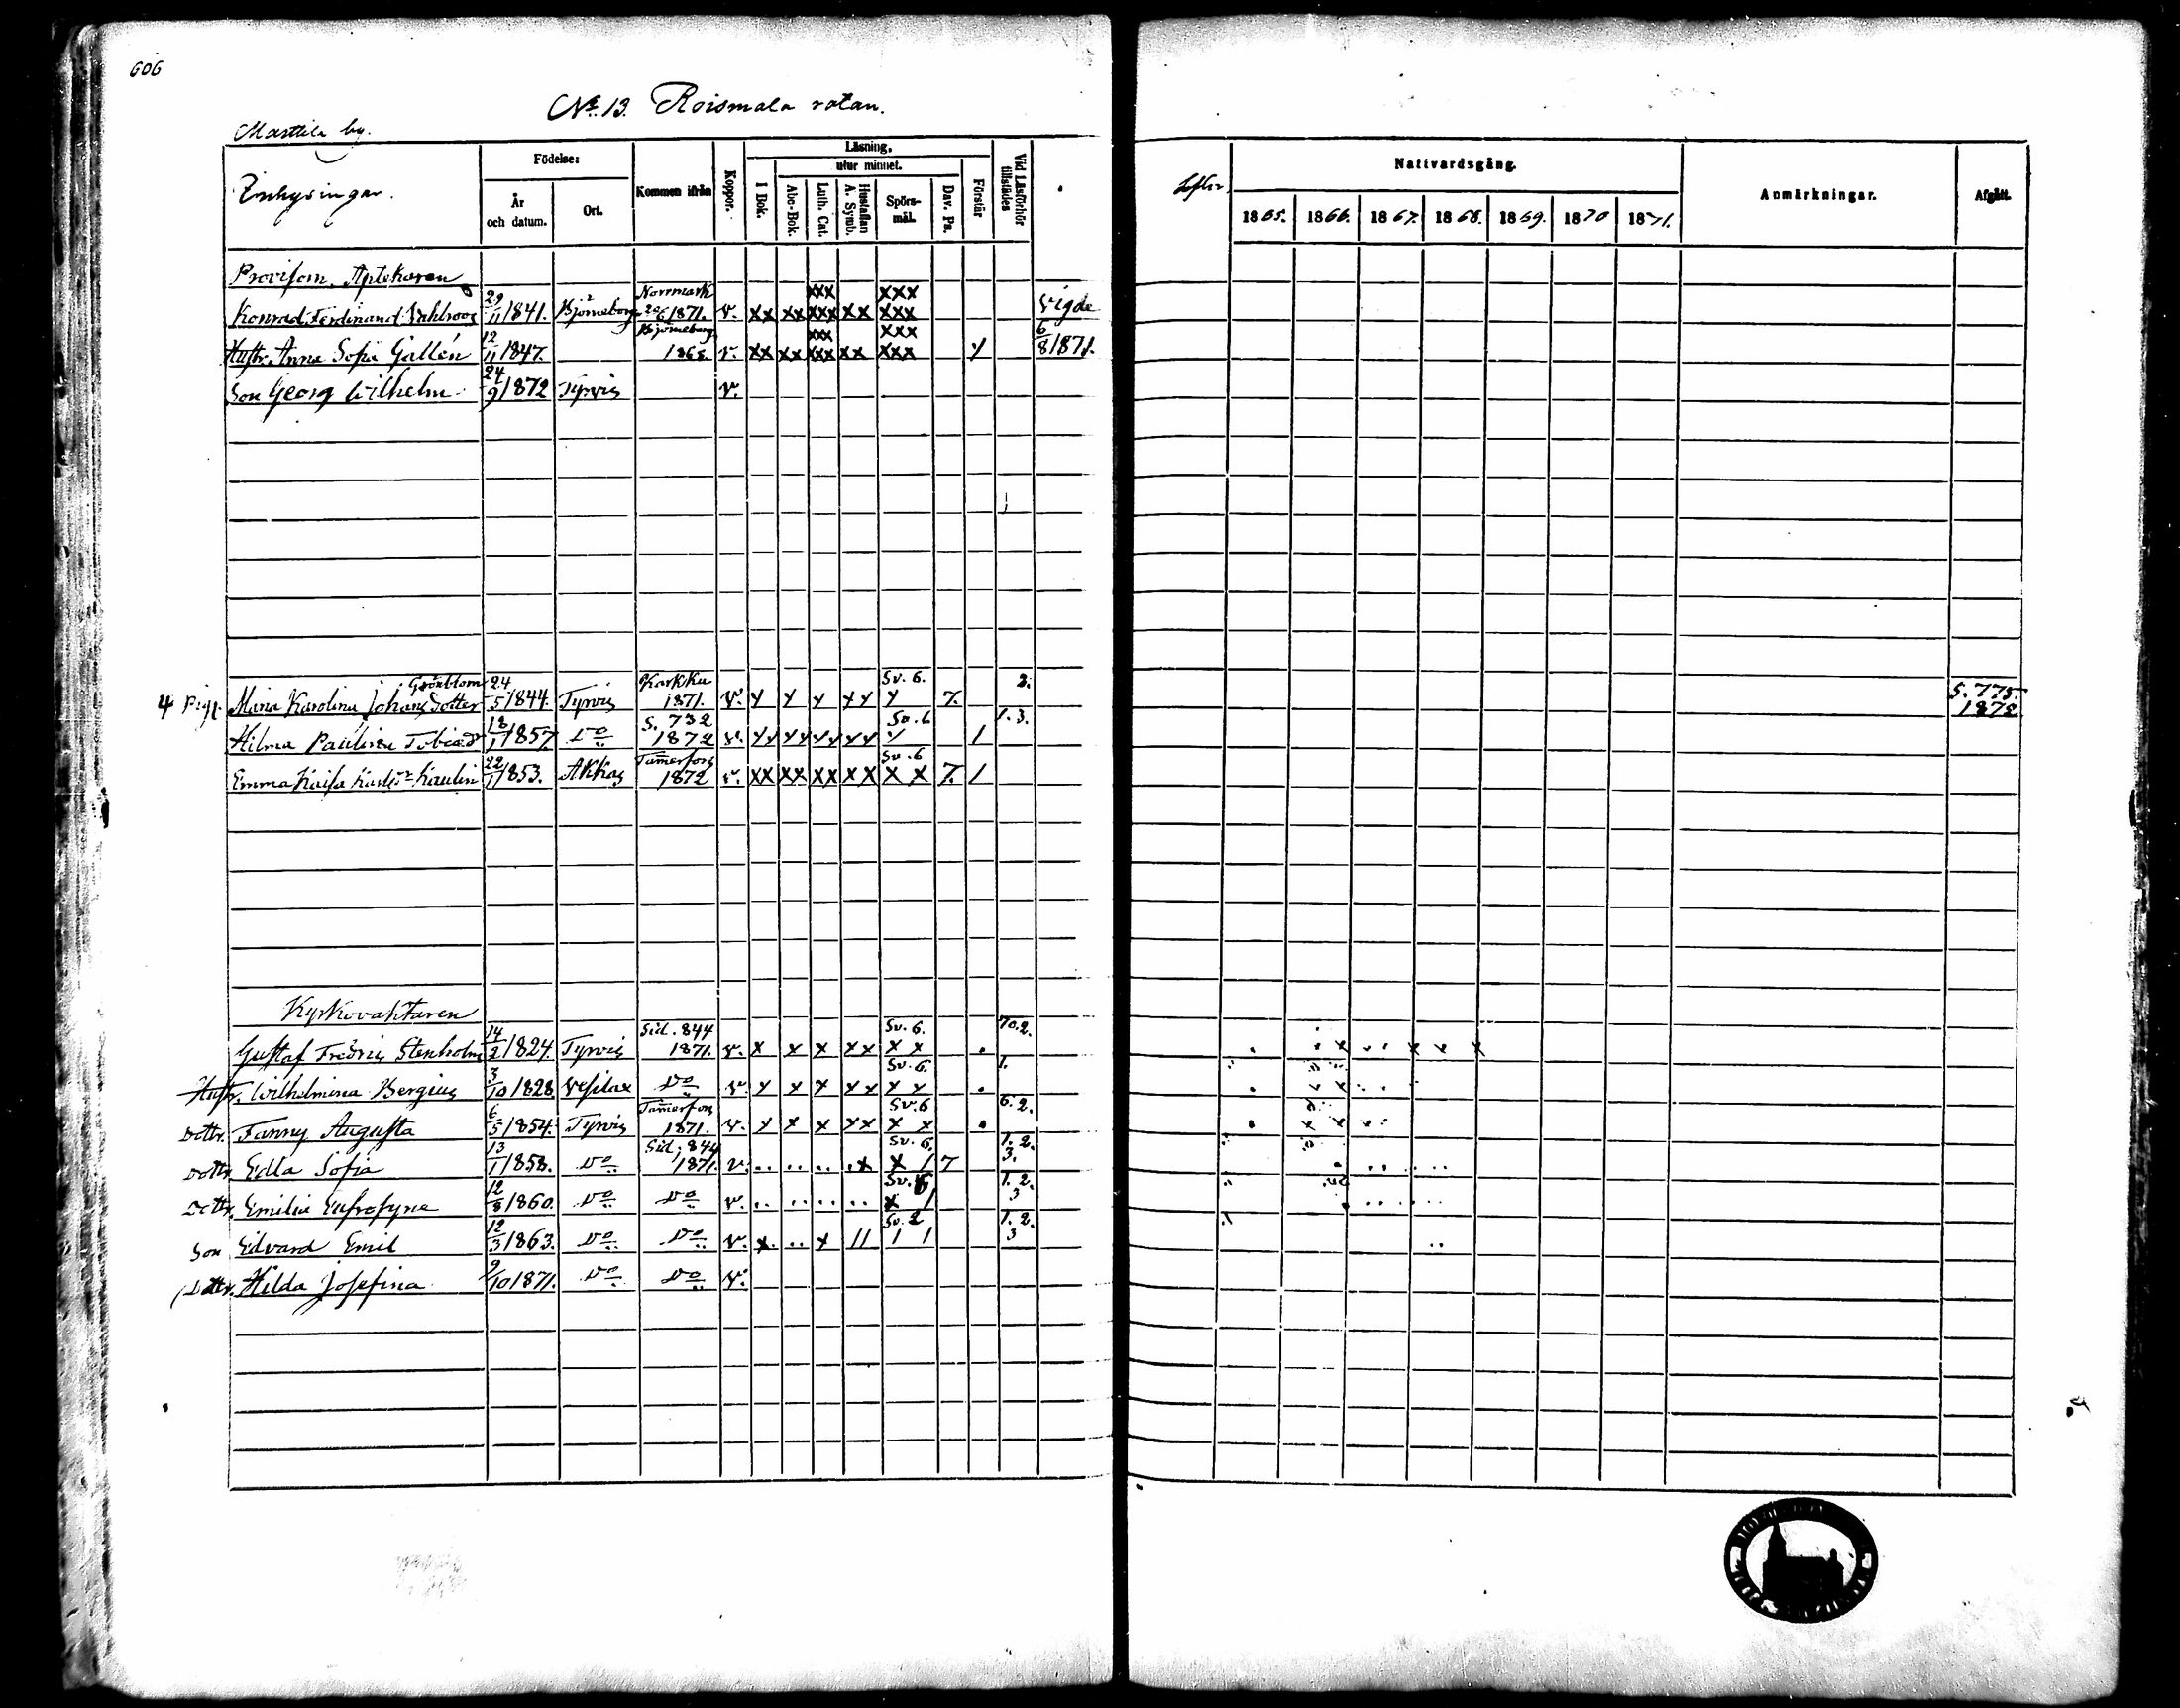 606
No 13. Roismala rotan.
Marttila by.
Inhysingar.
Födelse:
År och datum.
Ort.
Kommen ifrån
Koppor.
Läsning.
utur minnet.
I Bok.
Abc-Bok.
Luth. Cat.
Hustaflan A. Symb.
Spörs-mål.
Dav. Ps.
Förstår
Vid Läsförhör tillstädes
Nattvardsgång.
1865. 1866. 1867. 1868. 1869. 1870 1871.
Anmärkningar.
Afgått.
Provisorn, Apotekaren
Konrad Ferdinand Wahlroos 29/11 1841. Björneborg Norrmark 20/6 1871. v. xx xx xxx xxx xx xxx xxx Vigde
Hustr. Anna Sofia Gallén 12/11 1847. Björneborg 1868. v. xx xx xxx xxx xx xxx xxx y 6/8 1871.
Son Georg Wilhelm 24/9 1872 Tyrvis v.
4 Pig. Mina Karolina Johans Dotter Grönblom 24/5 1844. Tyrvis Karkku 1871. v. y y y yy Sv. 6. y 7. 2. S. 775. 1872
Hilma Paulina Tobiasdr 18/1 1857. Do S. 732 1872 v. yy yy yy yy Sv. 6 y / 1. 3.
Emma Kaisa Karlsdr Kaulin 22/1 1853. Akkas Tamerfors 1872 v. xx xx xx xx Sv. 6 x x 7. /
Kyrkovaktaren
Gustaf Fredric Stenholm 14/2 1824. Tyrvis Sid. 844 1871. v. x x x xx Sv. 6. x x . 70. 2.
Hustr. Wilhelmina Bergius 3/10 1828 Vesilax Do v. y x x xx Sv. 6. x x . 1.
Dottr. Fanny Augusta 6/5 1854. Tyrvis Tamerfors 1871. v. x x x xx Sv. 6 x x . 6. 2.
Dottr. Edla Sofia 13/1 1858. Do Sid. 844 1871. v. .. .. .. .x Sv. 6. x / 7 1. 2. 3.
Dottr. Emilia Eufrosyne 12/8 1860. Do Do v. .. .. .. .. Sv. 6 x / 1. 2. 3
Son Edvard Emil 12/3 1863. Do Do v. x. .. x // Sv. 2 / / 1. 2. 3
Dottr. Hilda Josefina 9/10 1871. Do Do v.